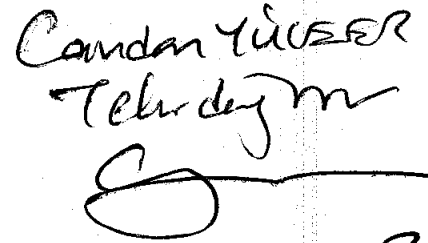 Candan YÜCEER
Tekirdağ mv